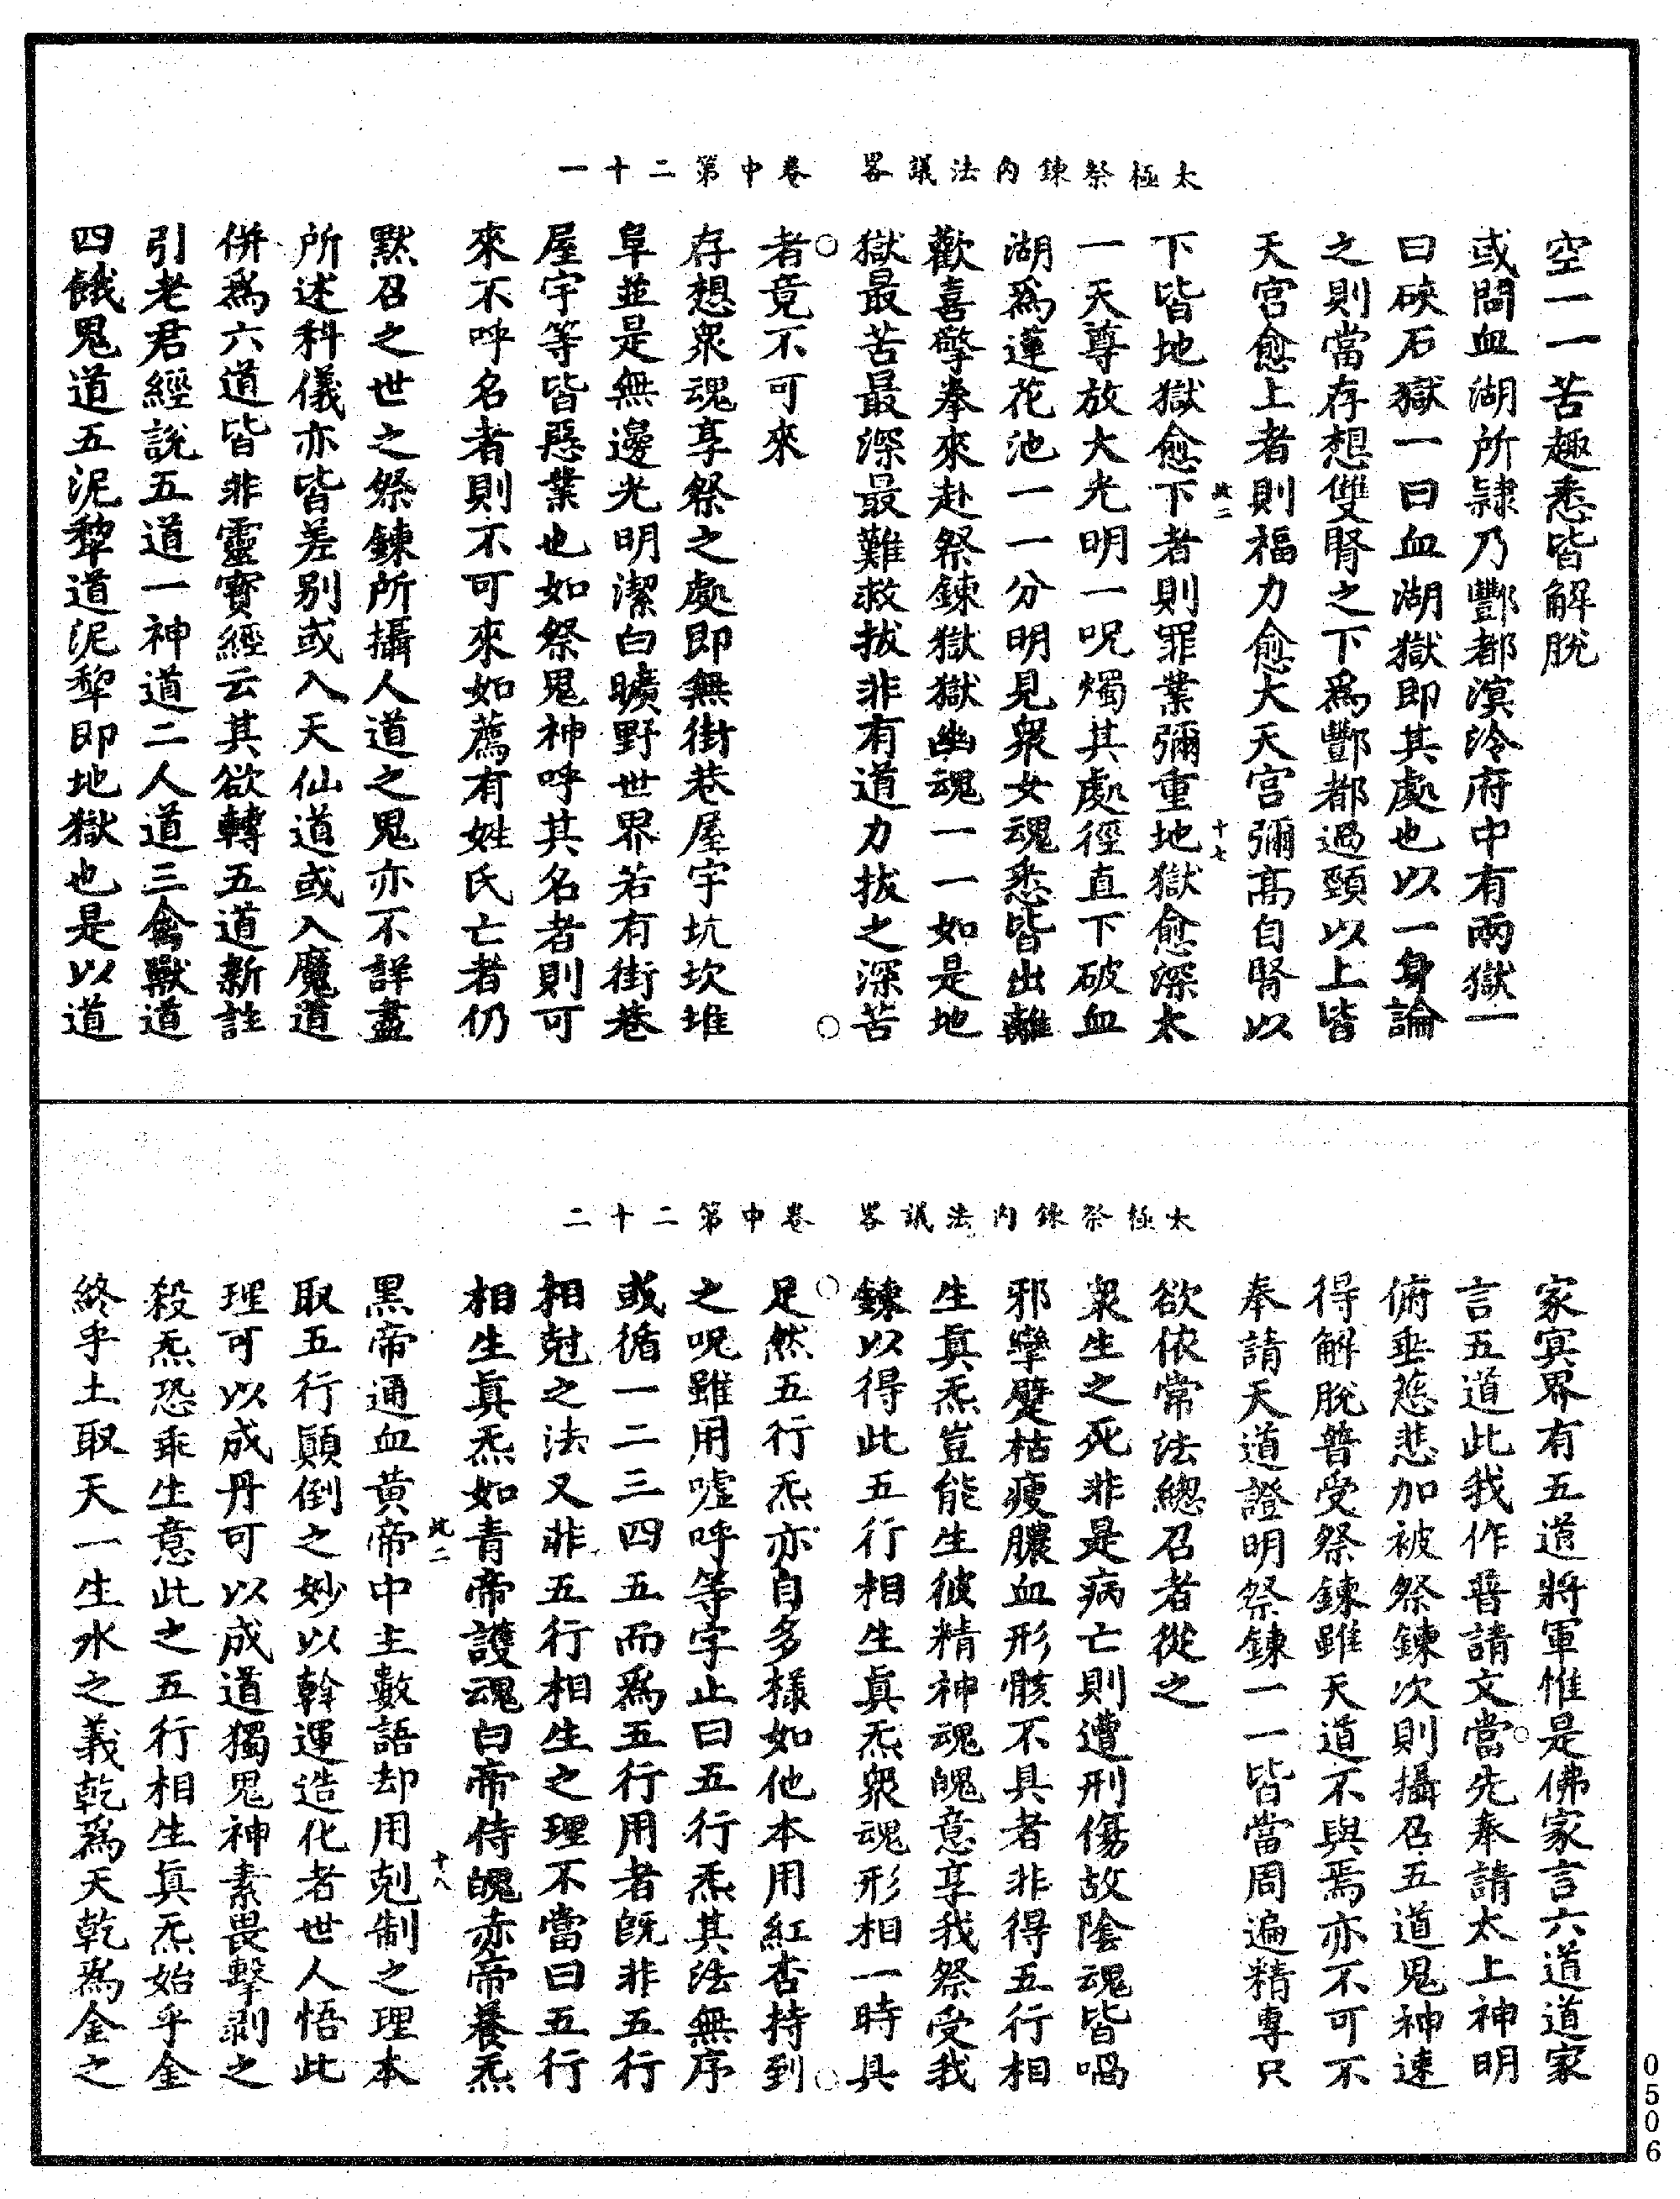 太極祭鍊內法議畧　卷中第二十一
空一一苦趣悉皆解脫
或問血湖所隷乃酆都溟泠府中有兩獄一
曰硤石獄一曰血湖獄即其處也以一身論
之則當存想雙腎之下爲酆都過頸以上皆
天宮愈上者則福力愈大天宮彌高自腎以
此二　十七
下皆地獄愈下者則罪業彌重地獄愈深太
一天尊放大光明一呪燭其處徑直下破血
湖爲蓮花池一一分明見衆女魂悉皆出離
歡喜擎拳來赴祭鍊獄獄幽魂一一如是地
獄最苦最深最難救拔非有道力拔之深苦
者竟不可來
存想衆魂享祭之處即無街巷屋宇坑坎堆
阜並是無邊光明潔白曠野世界若有街巷
屋宇等皆惡業也如祭鬼神呼其名者則可
來不呼名者則不可來如薦有姓氏亡者仍
默召之世之祭鍊所攝人道之鬼亦不詳盡
所述科儀亦皆差别或入天仙道或入魔道
併爲六道皆非靈寳經云其欲轉五道新註
引老君經說五道一神道二人道三禽獸道
四餓鬼道五泥犂道泥犂即地獄也是以道
太極祭鍊內法議畧　卷中第二十二
家冥界有五道將軍惟是佛家言六道道家
言五道此我作普請文當先奉請太上神明
俯垂慈悲加被祭鍊次則攝召五道鬼神速
得解脫普受祭鍊雖天道不與焉亦不可不
奉請天道證明祭鍊一一皆當周遍精專只
欲依常法總召者從之
衆生之死非是病亡則遭刑傷故陰魂皆喎
邪攣躄枯瘦膿血形骸不具者非得五行相
生眞炁豈能生彼精神魂魄意享我祭受我
鍊以得此五行相生眞炁衆魂形相一時具
足然五行炁亦自多樣如他本用紅杏持到
之呪雖用噓呼等字止曰五行炁其法無序
或循一二三四五而爲五行用者旣非五行
相尅之法又非五行相生之理不當曰五行
相生眞炁如青帝護魂白帝侍魄赤帝養炁
此二　十八
黑帝通血黃帝中主數語却用剋制之理本
取五行顚倒之妙以斡運造化者世人悟此
理可以成丹可以成道獨鬼神素畏擊剥之
殺炁恐乖生意此之五行相生眞炁始乎金
終乎土取天一生水之義乾爲天乾爲金之
0506